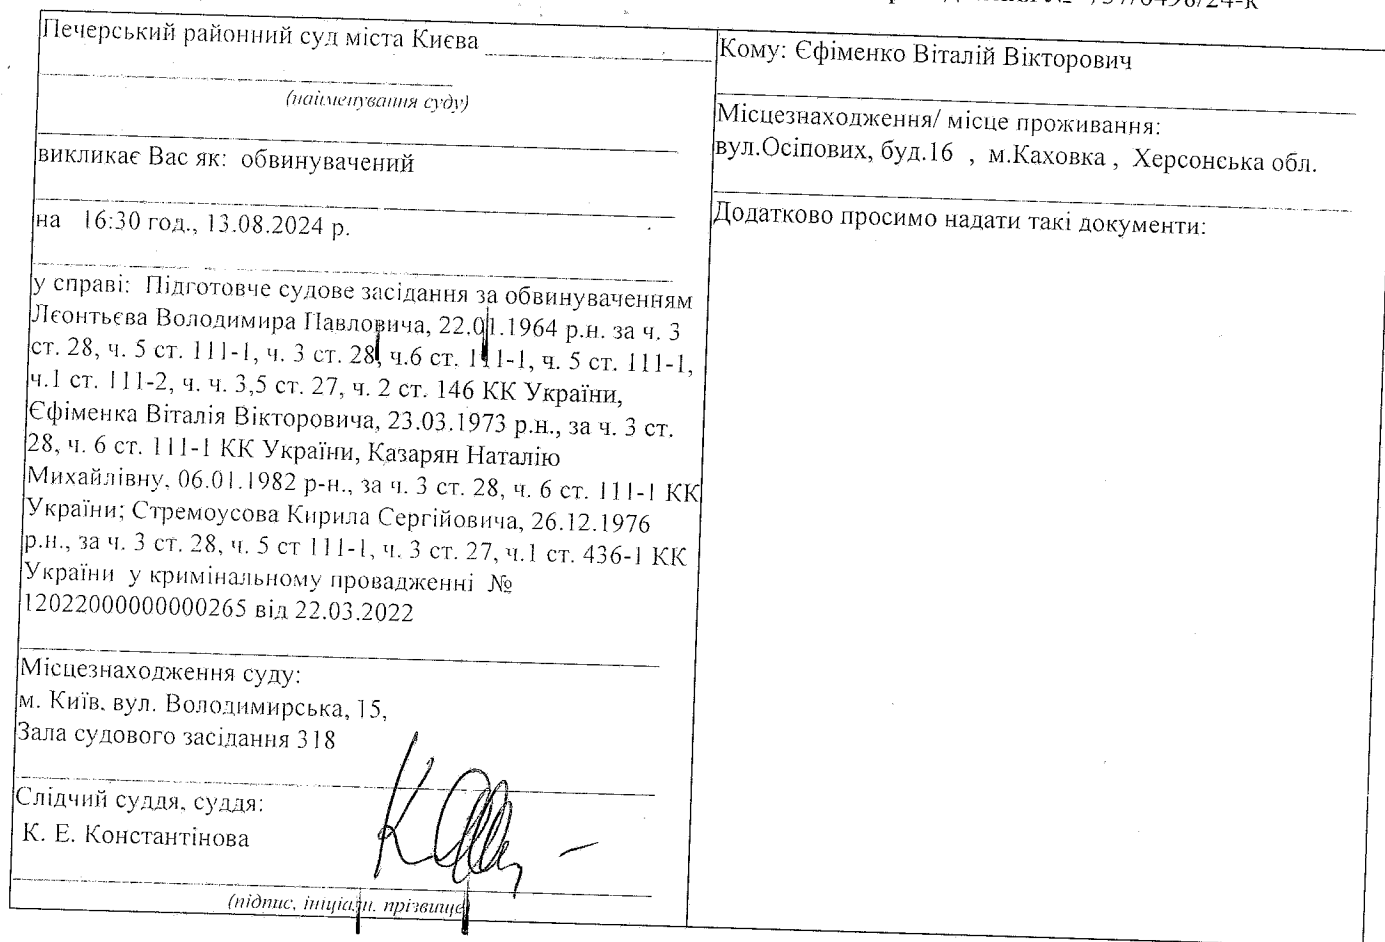 № 757/6498/24-к
Печерський районний суд міста Києва
(найменування суду)
викликає Вас як: обвинувачений
на 16:30 год., 13.08.2024 р.
у справі: Підготовче судове засідання за обвинуваченням
Лєонтьєва Володимира Павловича, 22.01.1964 р.н. за ч. 3
ст. 28, ч. 5 ст. 111-1, ч. 3 ст. 28, ч.6 ст. 111-1, ч. 5 ст. 111-1,
ч.1 ст. 111-2, ч. ч. 3,5 ст. 27, ч. 2 ст. 146 КК України,
Єфіменка Віталія Вікторовича, 23.03.1973 р.н., за ч. 3 ст.
28, ч. 6 ст. 111-1 КК України, Казарян Наталію
Михайлівну, 06.01.1982 р-н., за ч. 3 ст. 28, ч. 6 ст. 111-1 КК
України; Стремоусова Кирила Сергійовича, 26.12.1976
р.н., за ч. 3 ст. 28, ч. 5 ст 111-1, ч. 3 ст. 27, ч.1 ст. 436-1 КК
України у кримінальному провадженні №
12022000000000265 від 22.03.2022
Місцезнаходження суду:
м. Київ, вул. Володимирська, 15,
Зала судового засідання 318
Слідчий суддя, суддя:
К. Е. Константінова
(підпис, ініціали, прізвище)
Кому: Єфіменко Віталій Вікторович
Місцезнаходження/ місце проживання:
вул.Осіпових, буд.16 , м.Каховка , Херсонська обл.
Додатково просимо надати такі документи: